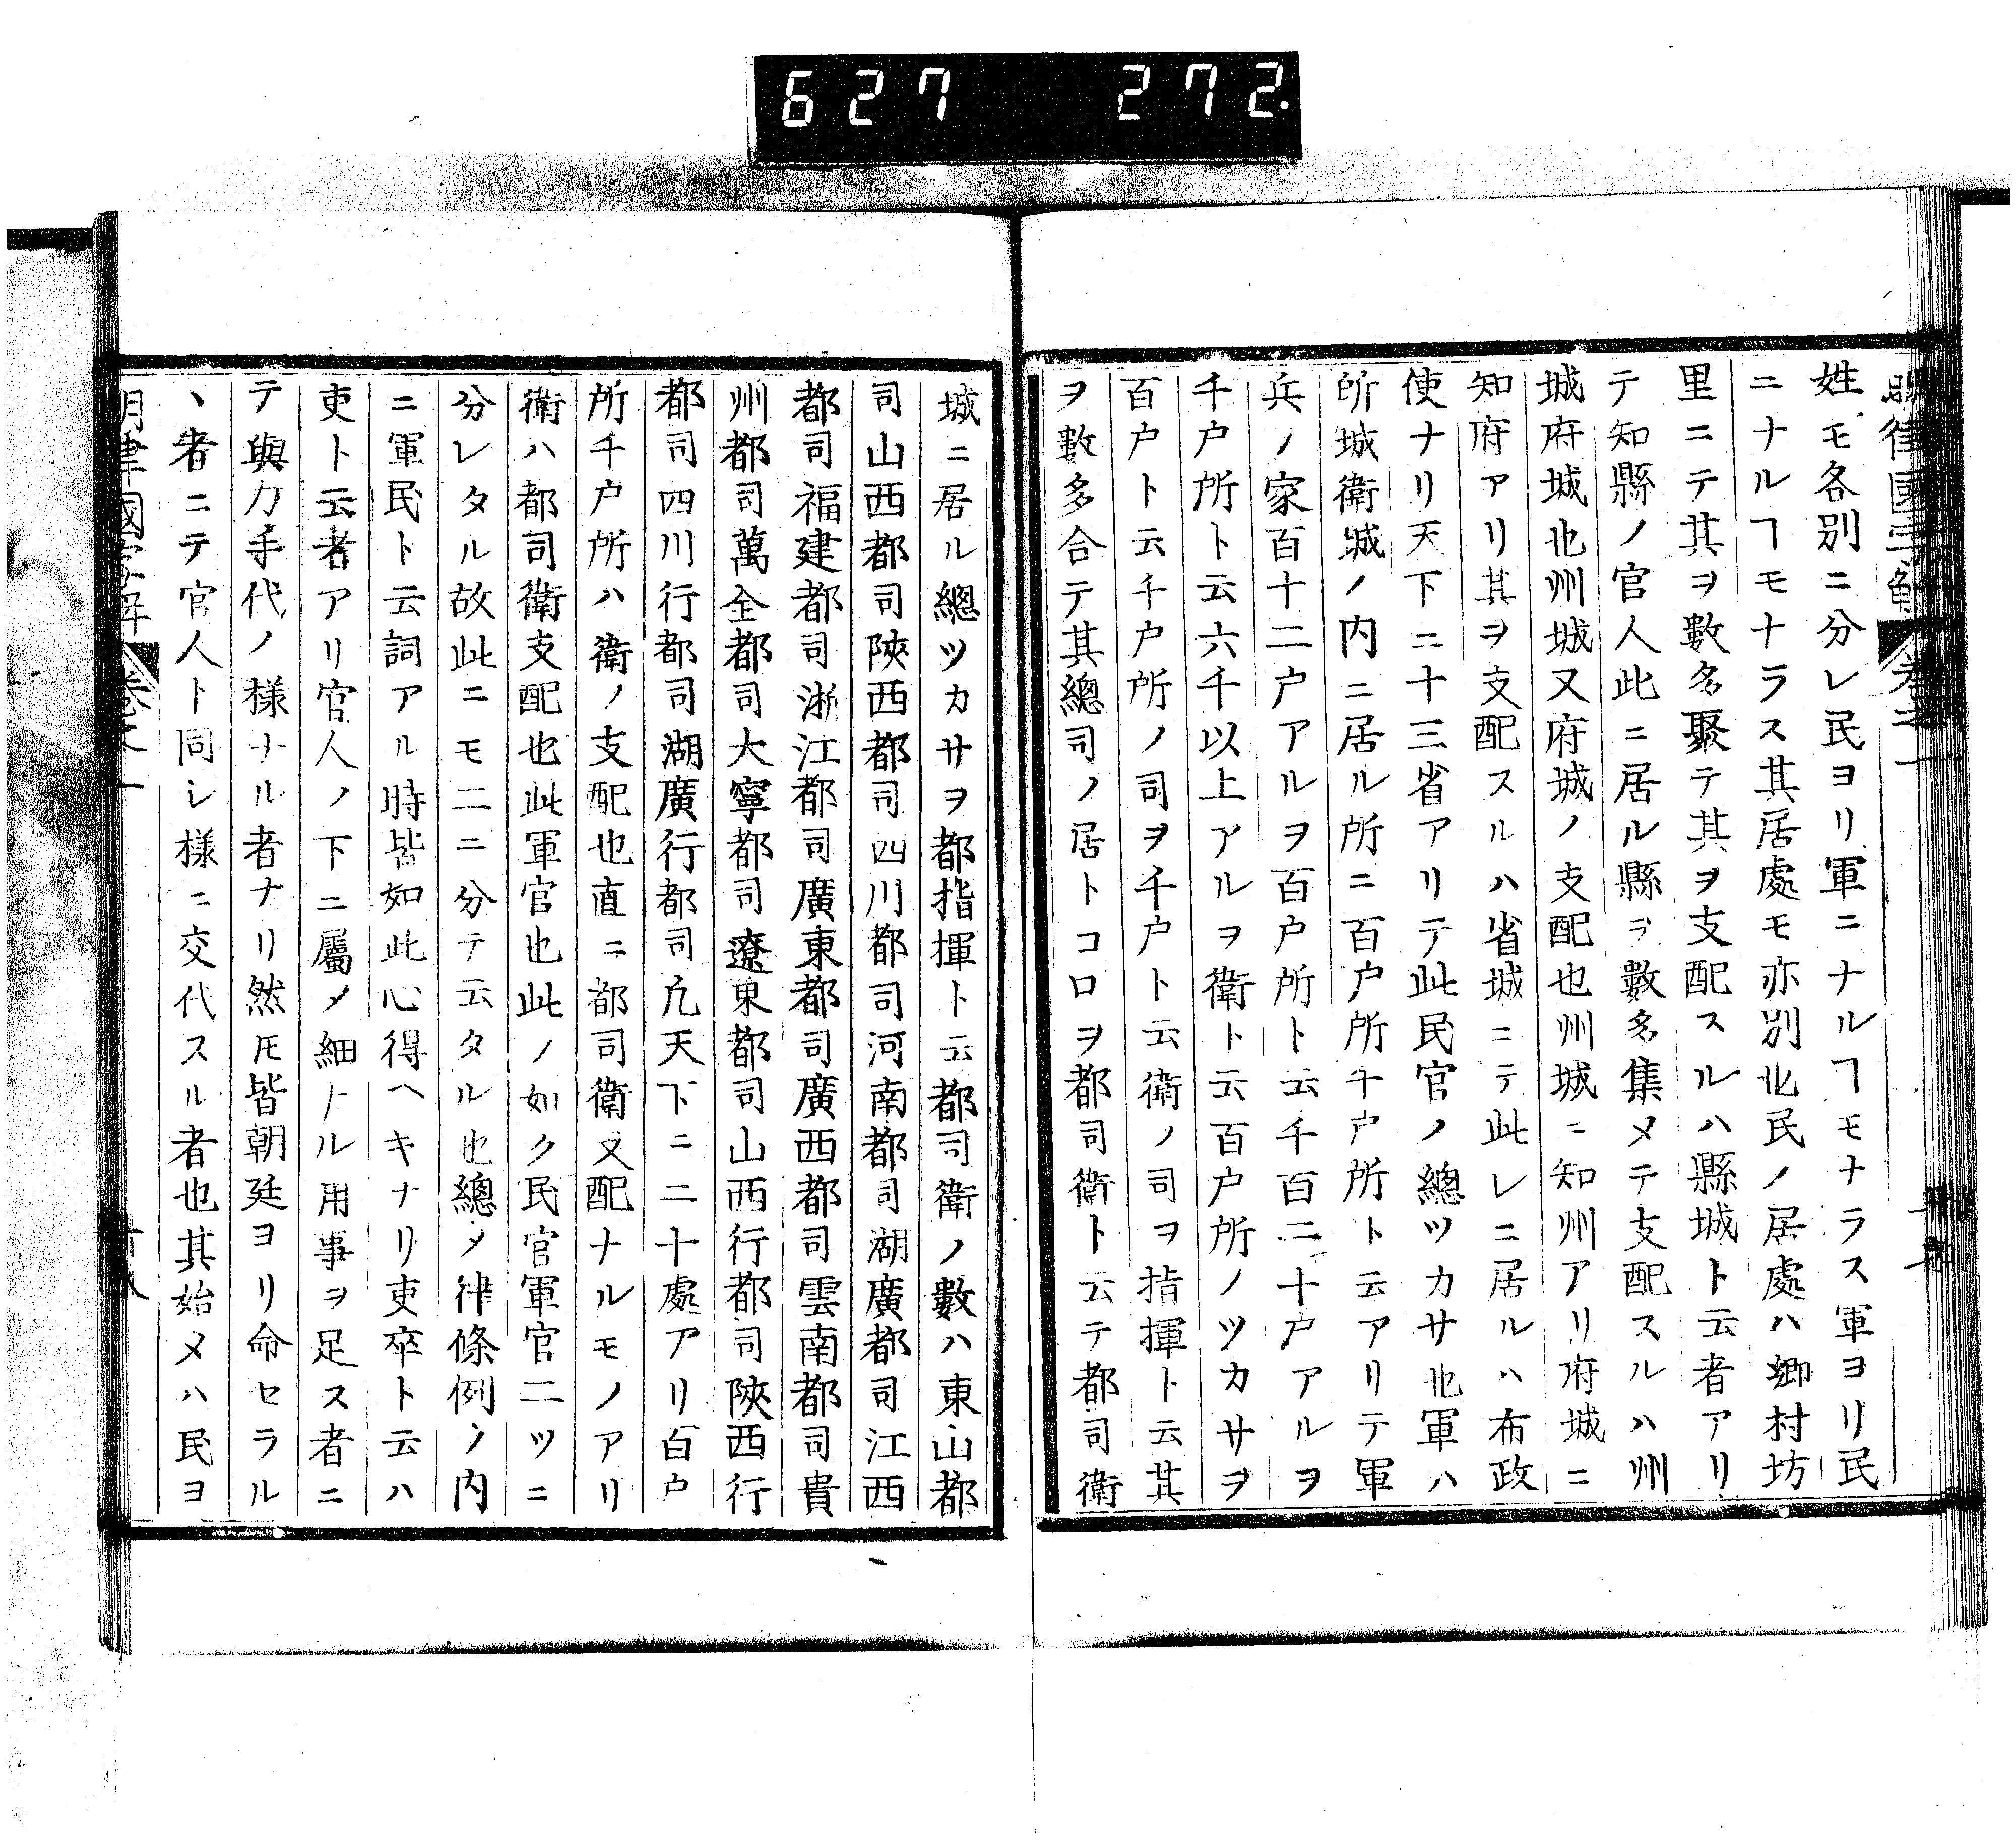 627 272.
姓モ各別ニ分レ民ヨリ軍ニナルヿモナラス軍ヨリ民
ニナルヿモナラス其居處モ亦別也民ノ居處ハ鄉村坊
里ニテ其ヲ數多聚テ其ヲ支配スルハ縣城ト云者アリ
テ知縣ノ官人此ニ居ル縣ヲ數多集メテ支配スルハ州
城府城也州城又府城ノ支配也州城ニ知州アリ府城ニ
知府アリ其ヲ支配スルハ省城ニテ此レニ居ルハ布政
使ナリ天下ニ十三省アリテ此民官ノ總ツカサ也軍ハ
所城衛城ノ内ニ居ル所ニ百户所千户所ト云アリテ軍
兵ノ家百十二户アルヲ百户所ト云千百二十户アルヲ
千户所ト云六千以上アルヲ衛ト云百户所ノツカサヲ
百户ト云千户所ノ司ヲ千户ト云衛ノ司ヲ指揮ト云其
ヲ數多合テ其總司ノ居トコロヲ都司衛ト云テ都司衛
城ニ居ル總ツカサヲ都指揮ト云都司衛ノ數ハ東山都
司山西都司陝西都司四川都司河南都司湖廣都司江西
都司福建都司浙江都司廣東都司廣西都司雲南都司貴
州都司萬全都司大寧都司遼東都司山西行都司陝西行
都司四川行都司湖廣行都司凢天下ニ二十處アリ百户
所千户所ハ衛ノ支配也直ニ都司衛支配ナルモノアリ
衛ハ都司衛支配也此軍官也此ノ如ク民官軍官二ツニ
分レタル故此ニモ二ニ分テ云タル也總メ律條例ノ内
ニ軍民ト云詞アル時皆如此心得ヘキナリ吏卒ト云ハ
吏ト云者アリ官人ノ下ニ屬メ細トル用事ヲ足ス者ニ
テ與力手代ノ様ナル者ナリ然𪜈皆朝廷ヨリ命セラル
丶者ニテ官人ト同シ様ニ交代スル者也其始メハ民ヨ
明律國字解 卷之一